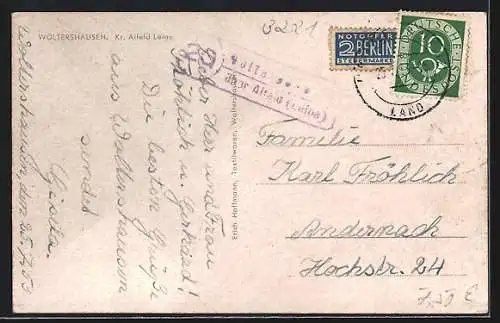 WOLTERSHAUSEN, Kr. Alfeld Leine
3221
NOTOPFER
2 BERLIN
STEUERMARKE
DEUTSCHE BUNDESPOST
10
LAND
über Alfeld (Leine)
Erich Hoffmann, Textilwaren, Woltershausen
Lieber Herr und Frau
Fröhlich u. Gerhard!
Die besten Grüße
aus Woltershausen
sendet
Gisela.
Woltershausen den 25.7.53
Familie
Karl Fröhlich
Andernach
Hochstr. 24